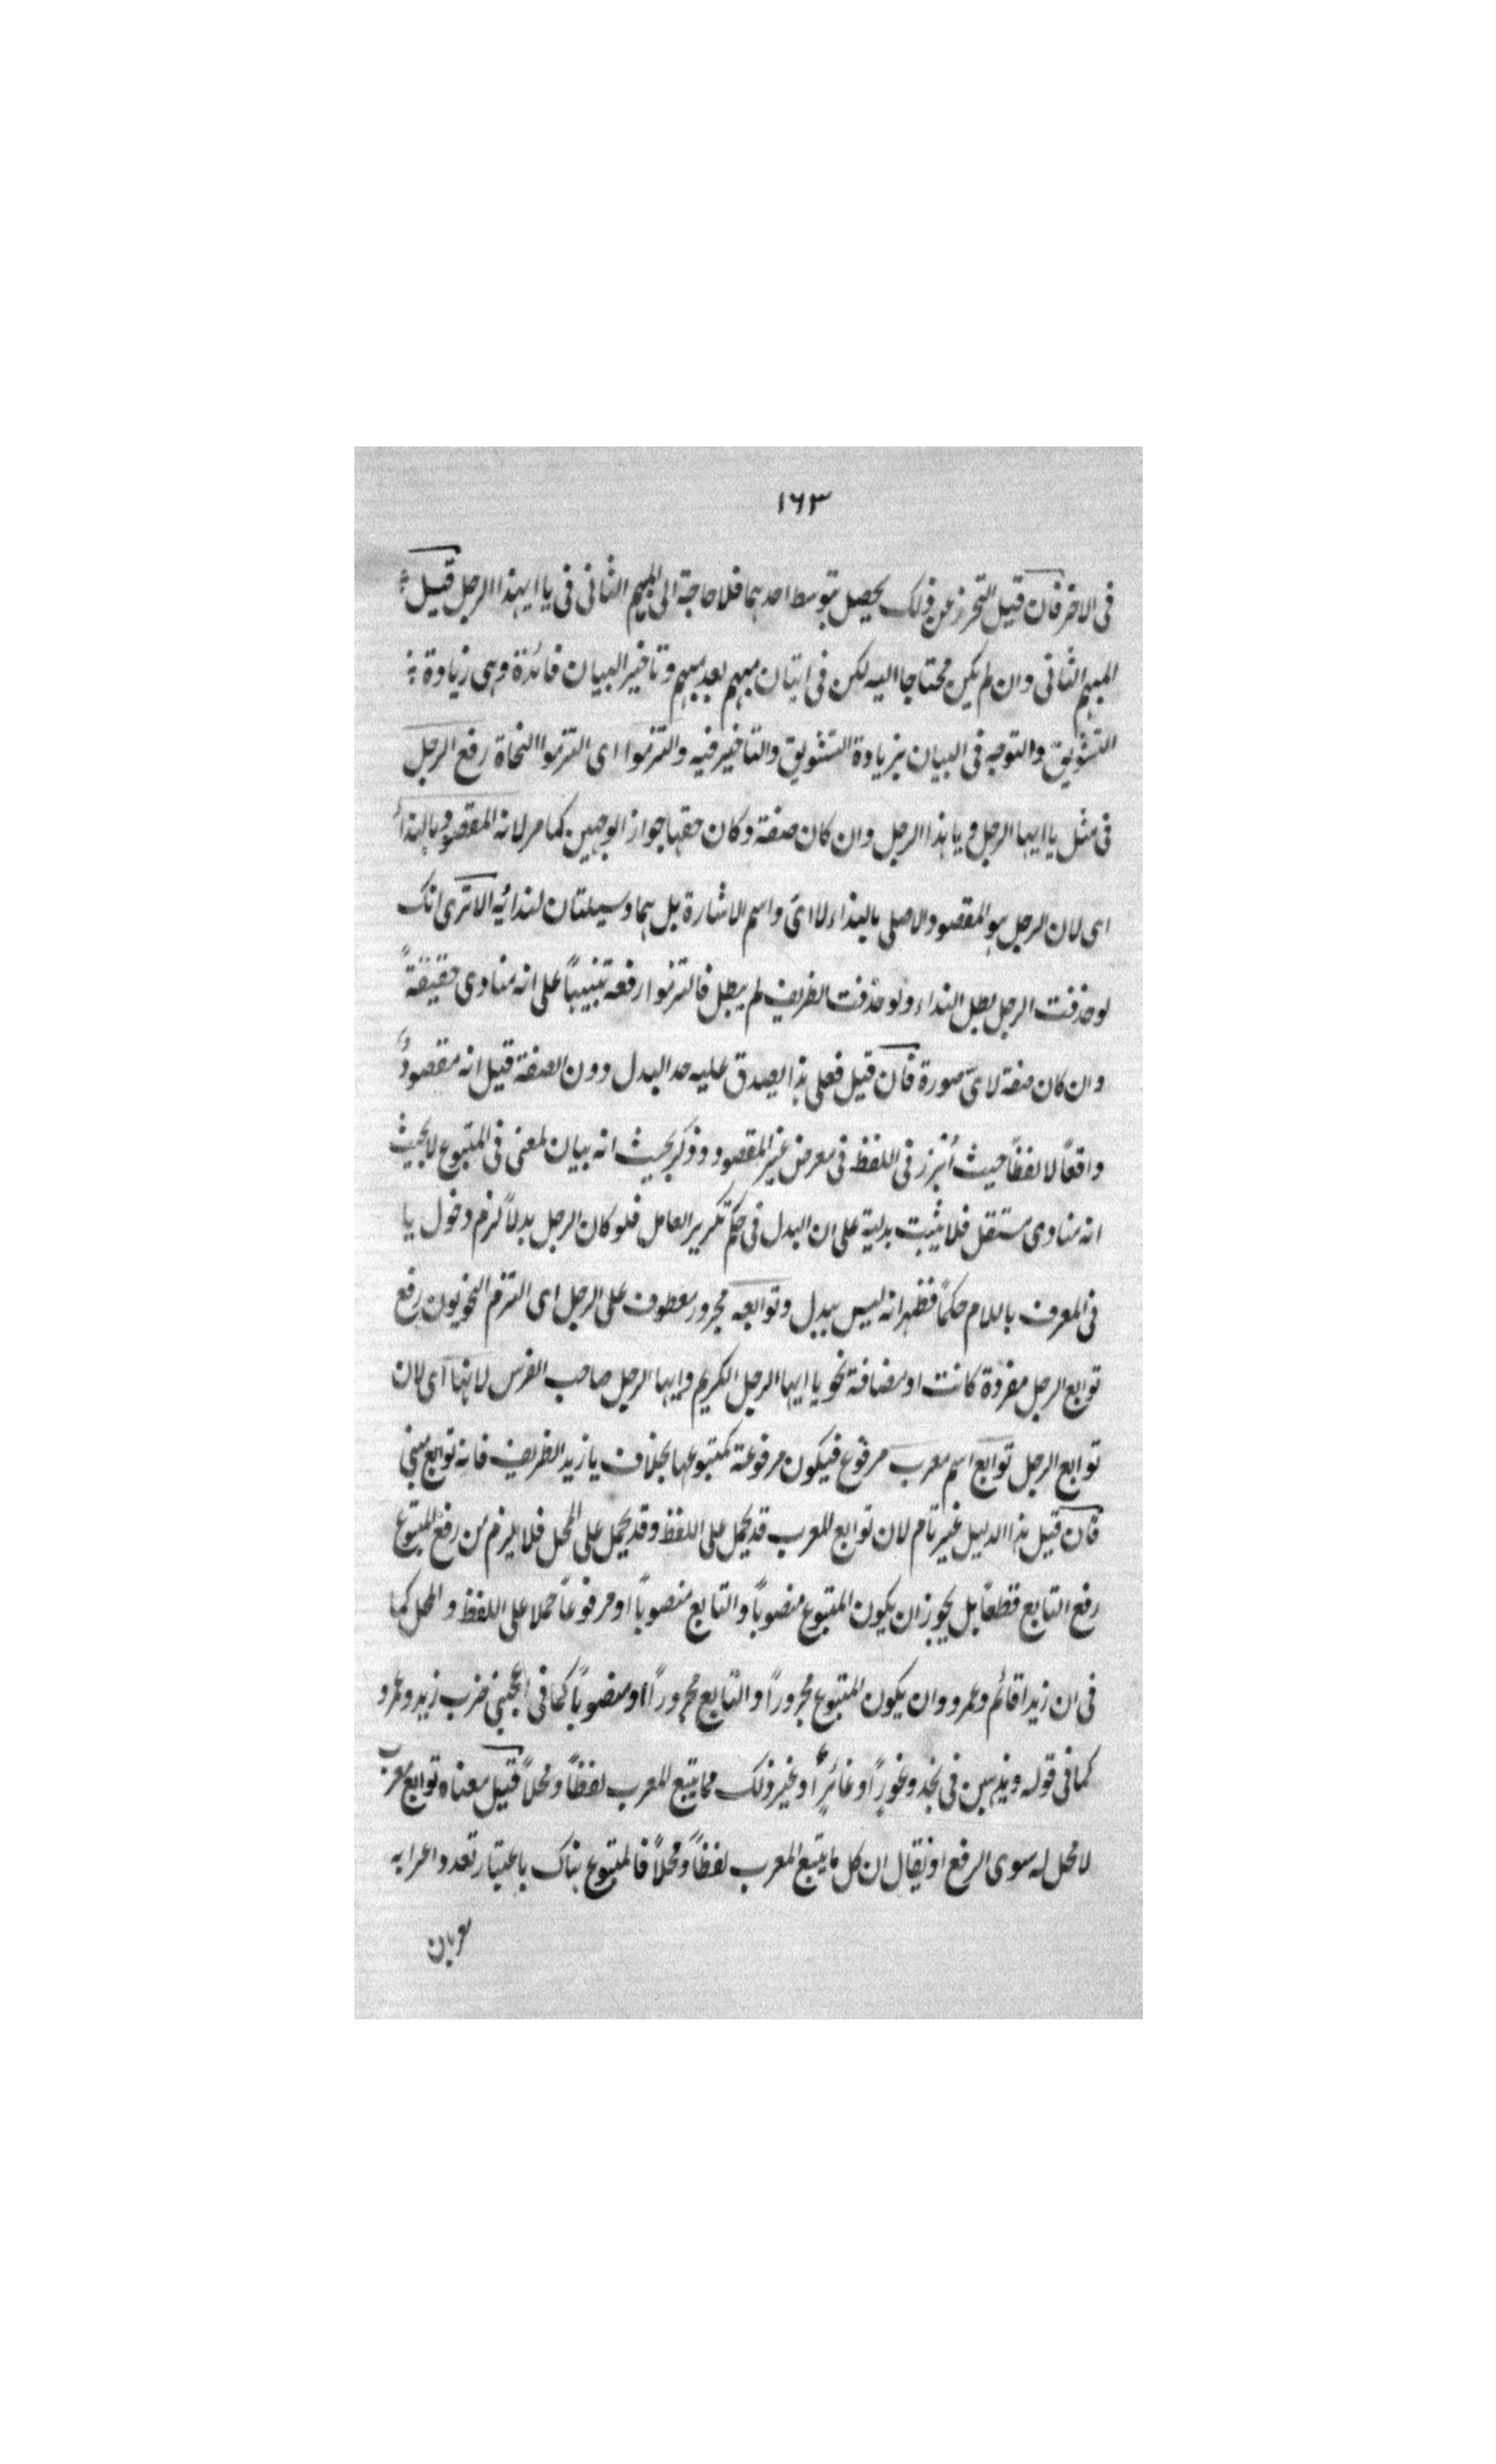 ١٦٣
فى الاخر فان قيل التحرز عن ذلك يحصل بتوسط احدهما فلا حاجة الى المبهم الثانى فى يا ايهذا الرجل قيل
المبهم الثانى وان لم يكن محتاجا اليه لكن فى اتيان مبهم بعد مبهم وتاخير البيان فائدة وهى زيادة
التشويق والتوجه فى البيان بزيادة التشويق والتاخير فيه والتزموا اى التزموا النحاة رفع الرجل
فى مثل يا ايها الرجل ويا هذا الرجل وان كان صفة وكان حقها جواز الوجهين كما مر لانه المقصود بالنداء
اى لان الرجل هو المقصود الاصلى بالنداء لا اىّ واسم الاشارة بل هما وسيلتان لندائه الا ترى انك
لو حذفت الرجل بطل النداء ولو حذفت الظريف لم يبطل فالتزموا رفعه تنبيهاً على انه منادى حقيقةً
وان كان صفة لاىّ صورة فان قيل فعلى هذا يصدق عليه حد البدل دون الصفة قيل انه مقصودٌ
واقعاً لا لفظاً حيث أبرز فى اللفظ فى معرض غير المقصود وذكر بحيث انه بيان لمعنى فى المتبوع لا بحيث
انه منادى مستقل فلا يثبت بدلية على ان البدل فى حكم تكرير العامل فلو كان الرجل بدلاً لزم دخول يا
فى المعرف باللام حكماً فظهر انه ليس ببدل وتوابعه مجرور معطوف على الرجل اى التزم النحويون رفع
توابع الرجل مفردة كانت او مضافة نحو يا ايها الرجل الكريم وايها الرجل صاحب الفرس لانها اى لان
توابع الرجل توابع اسم معرب مرفوع فيكون مرفوعة كمتبوعها بخلاف يا زيد الظريف فانه توابع مبنى
فان قيل هذا الدليل غير تام لان توابع المعرب قد يحمل على اللفظ وقد يحمل على المحل فلا يلزم من رفع المتبوع
رفع التابع قطعاً بل يجوز ان يكون المتبوع منصوباً والتابع منصوباً او مرفوعاً حملا على اللفظ والمحل كما
فى ان زيدا قائم وعمرو وان يكون المتبوع مجروراً والتابع مجروراً او منصوباً كما فى اعجبنى ضرب زيد وعمرو
كما فى قوله ويذهبن فى نجد وغورٍاً او غائرٍاً او غير ذلك مما يتبع المعرب لفظاً ومحلاً قيل معناه توابع معرب
لا محل له سوى الرفع او يقال ان كل ما يتبع المعرب لفظاً ومحلاً فالمتبوع هناك باعتبار تعدد اعرابه
معربان